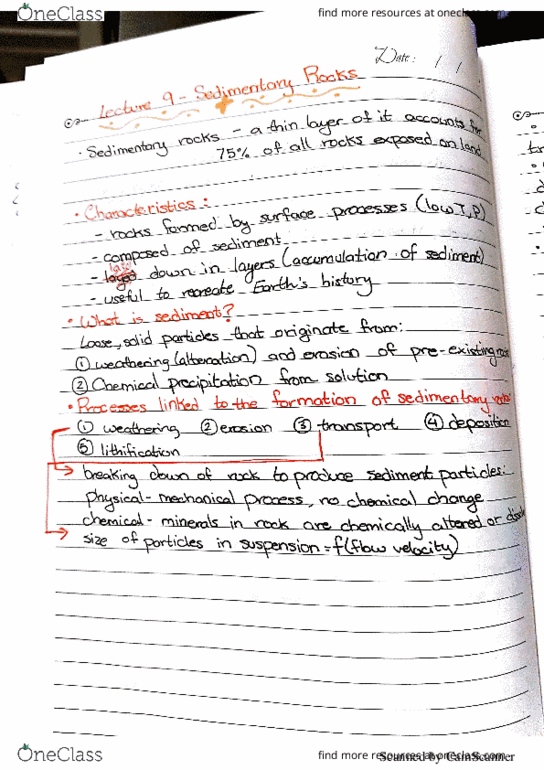 OneClass
find more resources at oneclass.com
Date: / /
Lecture 9 - Sedimentary Rocks
• Sedimentary rocks - a thin layer of it accounts for
75% of all rocks exposed on land
• Characteristics:
- rocks formed by surface processes (low T, P)
- composed of sediment
- down in layers (accumulation of sediment)
- useful to recreate Earth's history
• What is sediment?
Loose, solid particles that originate from:
① weathering (alteration) and erosion of pre-existing
② Chemical precipitation from solution
• Processes linked to the formation of sedimentary
① weathering ② erosion ③ transport ④ deposition
⑤ lithification
breaking down of rock to produce sediment particles:
physical - mechanical process, no chemical change
chemical - minerals in rock are chemically altered or
size of particles in suspension = f(flow velocity)
OneClass
find more resources at oneclass.com
Scanned by CamScanner